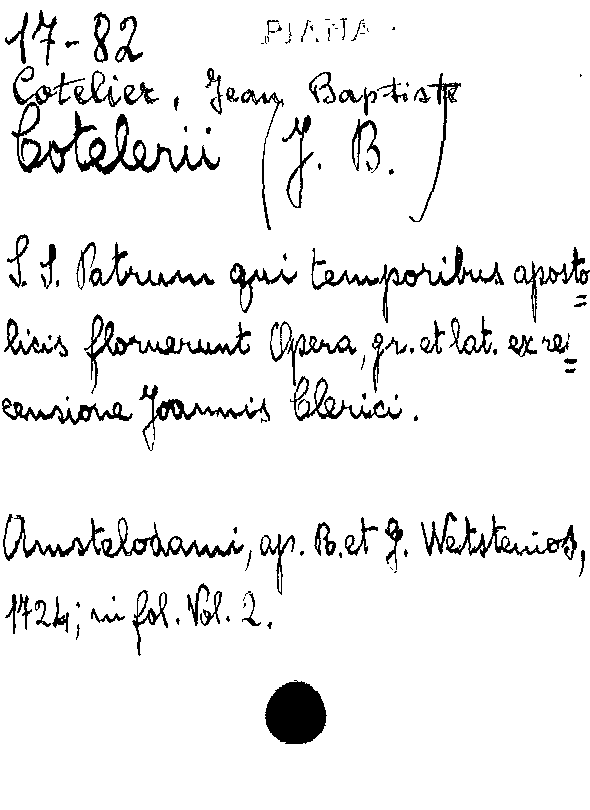 17-82 PIANA
Cotelier, Jean Baptiste
Cotelerii (J. B.)
S. S. Patrum qui temporibus aposto=
licis floruerunt Opera, gr. et lat. ex re=
censione Joannis Clerici.
Amstelodami, ap. R. et J. Wetstenios,
1724; in fol. Vol. 2.